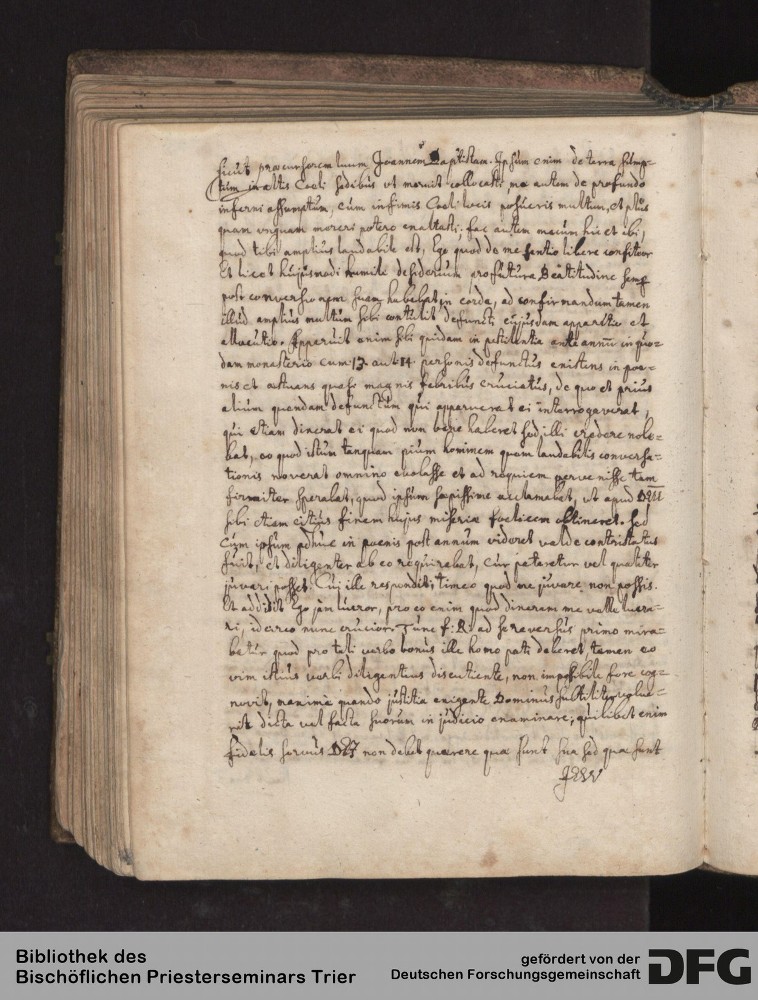 sicut praecursorem tuum Joannem Baptistam. Ipsum enim de terra sump=
tum in altis Coeli sedibus ut meruit collocasti, me autem de profundo
inferni assumptum, cum infimis Coeli locis posueris multum, et plus
quam unquam moreri potero exaltasti; fac autem mecum hic et ibi,
quod tibi amplius laudabile est, Ego quod de me sentio libere confiteor
Et licet hujusmodi humile desiderium profutura Beatitudine semp
post conversionem suam habebat in corde, ad confirmandum tamen
illud amplius multum sibi contulit defuncti cujusdam apparitio et
allocutio. Apparuit enim sibi quidam in pestilentia ante annū in quo=
dam monasterio cum 13. aut 14 personis defunctus existens in poe=
nis et aestuans quasi magnis febribus cruciatus, de quo et prius
alium quendam defunctum qui apparuerat ei interrogaverat,
qui etiam dixerat ei quod non bene haberet sed illi credere nole=
bat, eo quod istum tanquam pium hominem quem laudabilis conversa=
tionis noverat omnino evolasse et ad requiem pervenisse tam
firmiter sperabat, quod ipsum saepissime acclamabat, ut apud DEU
sibi etiam citius finem hujus miseriae foelicem obtineret. Sed
Cum ipsum adhuc in poenis post annum videret valde contristatus
fuit, et diligenter ab eo requirebat, Cur pateretur vel qualiter
juvari posset. Cui ille respondit, timeo quod me juvare non possis.
Et addidit Ego jam lucror, pro eo enim quod dixeram me velle lucra=
ri, idcirco nunc crucior. Tunc f: R. ad se reversus primo mira=
betur quod pro tali verbo bonus ille homo pati deberet, tamen eo
vim istius verbi diligentius discutiente, non impossibile fore cog=
novit, maxime quando justitia exigente Dominus subtiliter volue=
rit dicta vel facta suorum in judicio examinare; quilibet enim
fidelis servus DEI non debet quaerere quae sunt sua sed quae sunt
JESU
Bibliothek des
Bischöflichen Priesterseminars Trier
gefördert von der
Deutschen Forschungsgemeinschaft
DFG